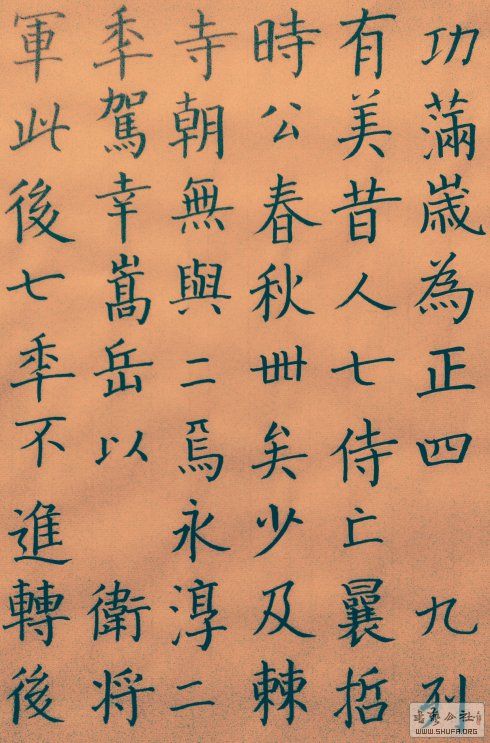 功滿嵗為正四 九列
有美昔人七侍亡曩哲
時公春秋卌矣少及棘
寺朝無與二焉永淳二
秊駕幸嵩岳以 衛将
軍此後七秊不進轉後
WWW.SHUFA.ORG